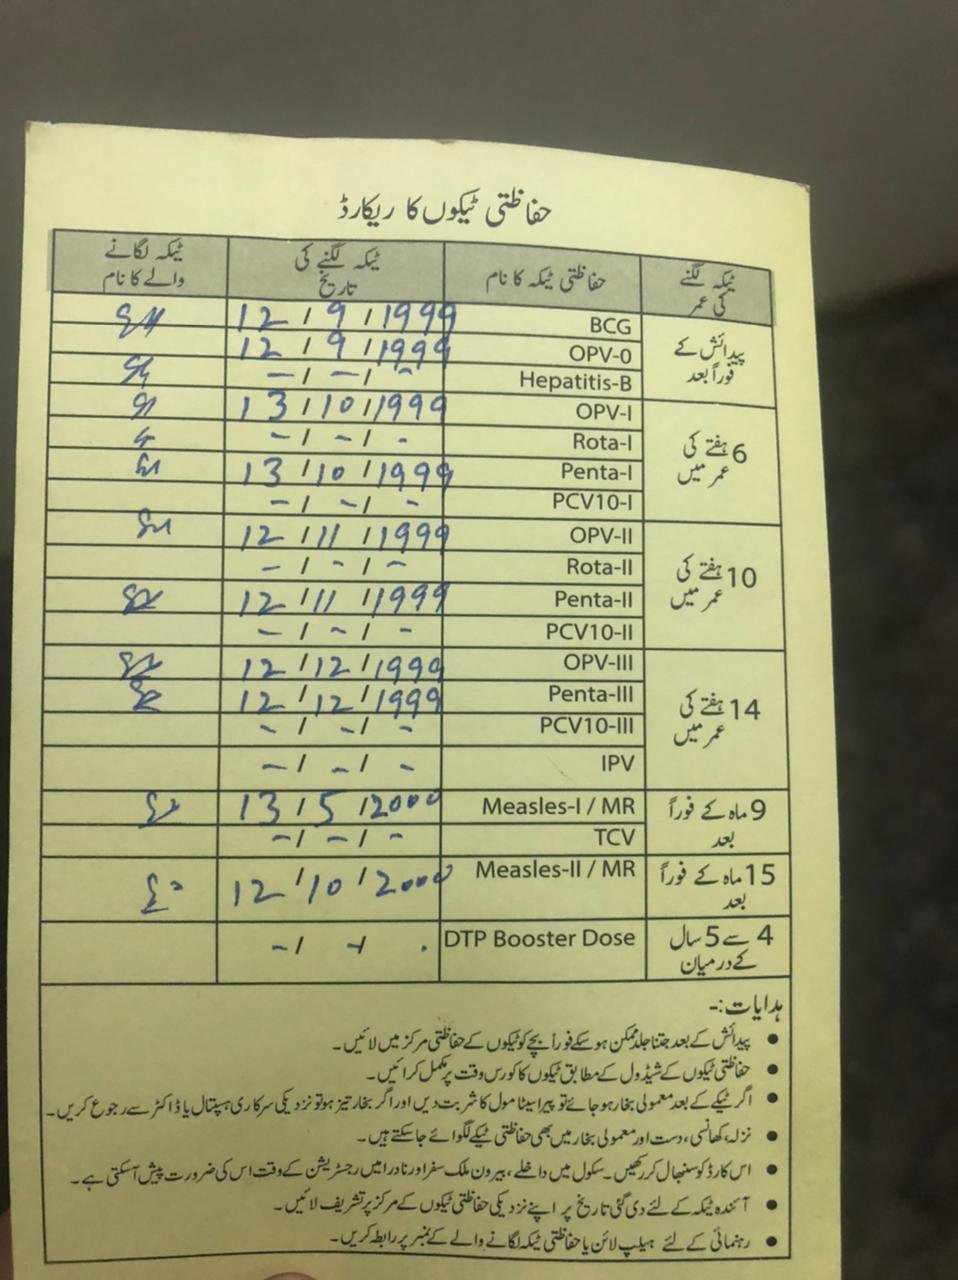 حفاظتی ٹیکوں کا ریکارڈ
ٹیکہ لگنے کی عمر | حفاظتی ٹیکہ کا نام | ٹیکہ لگنے کی تاریخ | ٹیکہ لگانے والے کا نام
پیدائش کے فوراً بعد | BCG | 12 / 9 / 1999
OPV-0 | 12 / 9 / 1999
Hepatitis-B | – / – / –
6 ہفتے کی عمر میں | OPV-I | 13 / 10 / 1999
Rota-I | – / – / –
Penta-I | 13 / 10 / 1999
PCV10-I | – / – / –
10 ہفتے کی عمر میں | OPV-II | 12 / 11 / 1999
Rota-II | – / – / –
Penta-II | 12 / 11 / 1999
PCV10-II | – / – / –
14 ہفتے کی عمر میں | OPV-III | 12 / 12 / 1999
Penta-III | 12 / 12 / 1999
PCV10-III | – / – / –
IPV | – / – / –
9 ماہ کے فوراً بعد | Measles-I / MR | 13 / 5 / 2000
TCV | – / – / –
15 ماہ کے فوراً بعد | Measles-II / MR | 12 / 10 / 2000
4 سے 5 سال کے درمیان | DTP Booster Dose | – / – / .
ہدایات:-
● پیدائش کے بعد جتنا جلد ممکن ہو سکے فوراً بچے کو ٹیکوں کے حفاظتی مرکز میں لائیں۔
● حفاظتی ٹیکوں کے شیڈول کے مطابق ٹیکوں کا کورس وقت پر مکمل کرائیں۔
● اگر ٹیکے کے بعد معمولی بخار ہو جائے تو پیراسیٹامول کا شربت دیں اور اگر بخار تیز ہو تو نزدیکی سرکاری ہسپتال یا ڈاکٹر سے رجوع کریں۔
● نزلہ، کھانسی، دست اور معمولی بخار میں بھی حفاظتی ٹیکے لگوائے جا سکتے ہیں۔
● اس کارڈ کو سنبھال کر رکھیں۔ سکول میں داخلے، بیرون ملک سفر اور نادرا میں رجسٹریشن کے وقت اس کی ضرورت پیش آسکتی ہے۔
● آئندہ ٹیکہ کے لئے دی گئی تاریخ پر اپنے نزدیکی حفاظتی ٹیکوں کے مرکز پر تشریف لائیں۔
● رہنمائی کے لئے ہیلپ لائن یا حفاظتی ٹیکہ لگانے والے کے نمبر پر رابطہ کریں۔